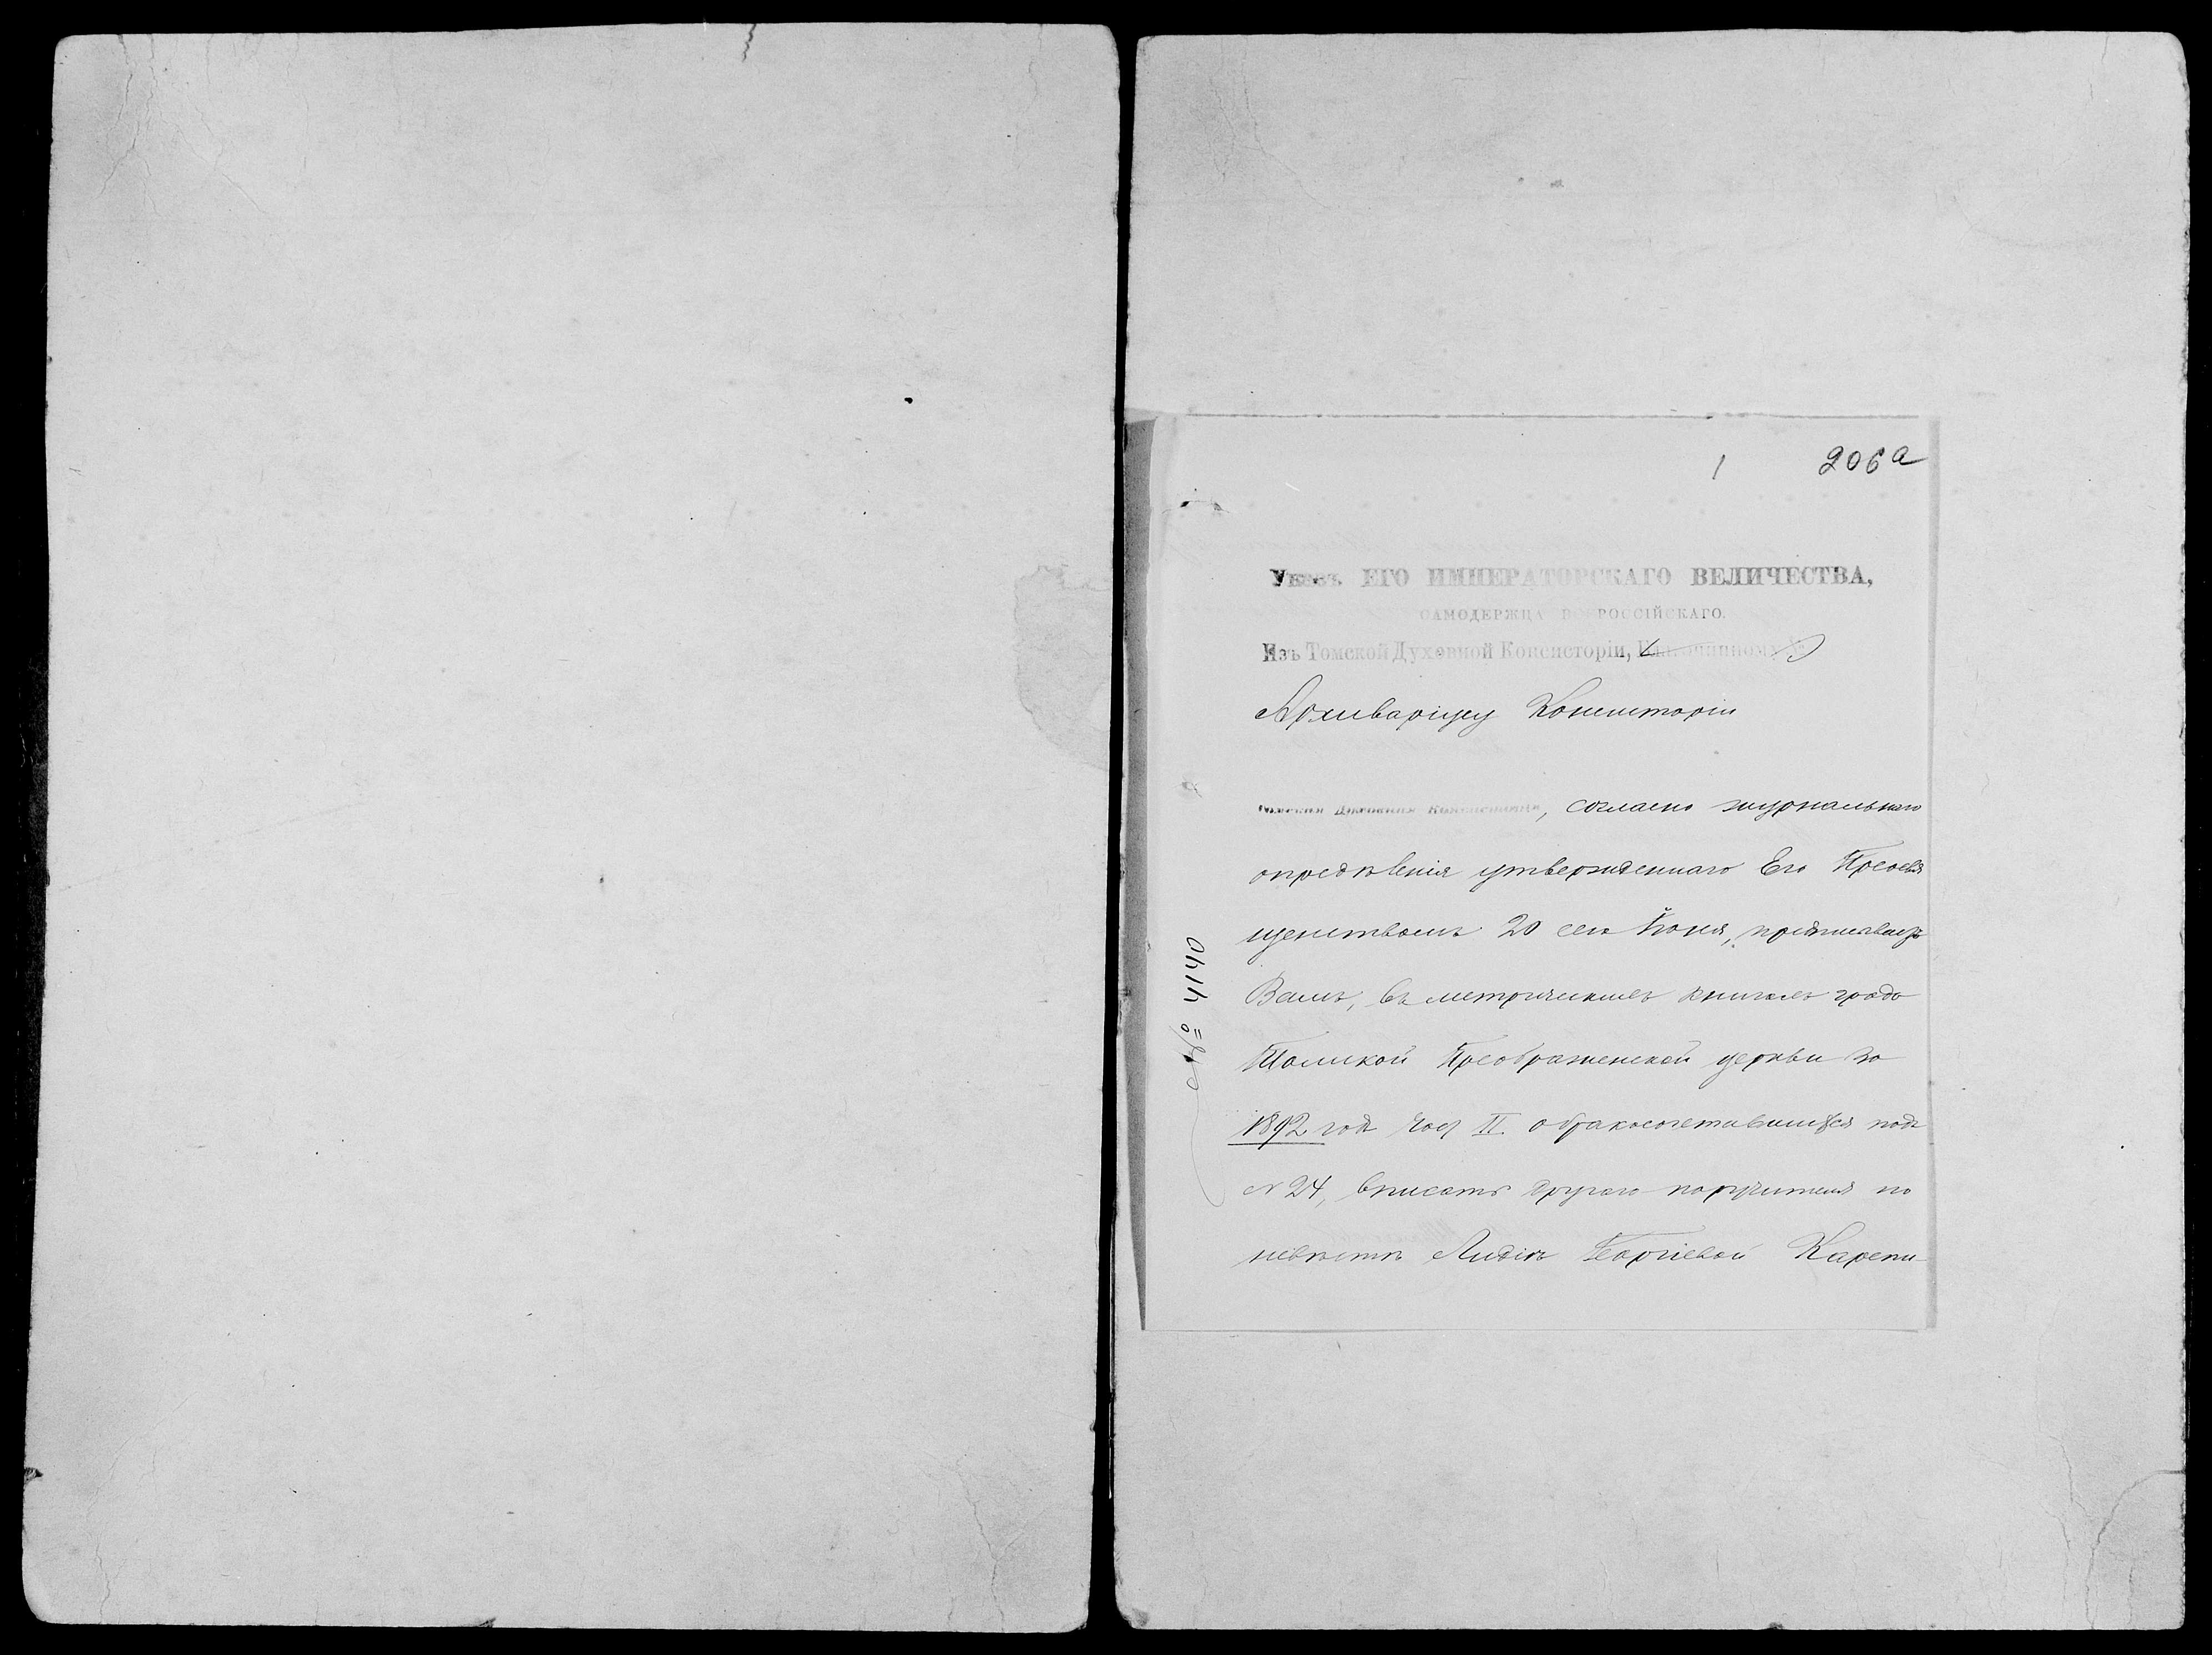 1 206а
Указъ ЕГО ИМПЕРАТОРСКАГО ВЕЛИЧЕСТВА,
САМОДЕРЖЦА ВСЕРОССІЙСКАГО.
Изъ Томской Духовной Консисторіи, Благочинному №
Архиваріусу Консисторіи
Томская Духовная Консисторія, согласно журнальнаго
опредѣленія утвержденнаго Его Преосвя
щенствомъ 20 сего Іюня, предписываетъ
Вамъ, въ метрическихъ книгахъ градо
Томской Преображенской церкви за
1892 годъ част II о бракосочетавшихся подъ
№ 24, вписать другаго поручителя по
невѣстѣ Лидіи Георгіевой Карепи-
4140